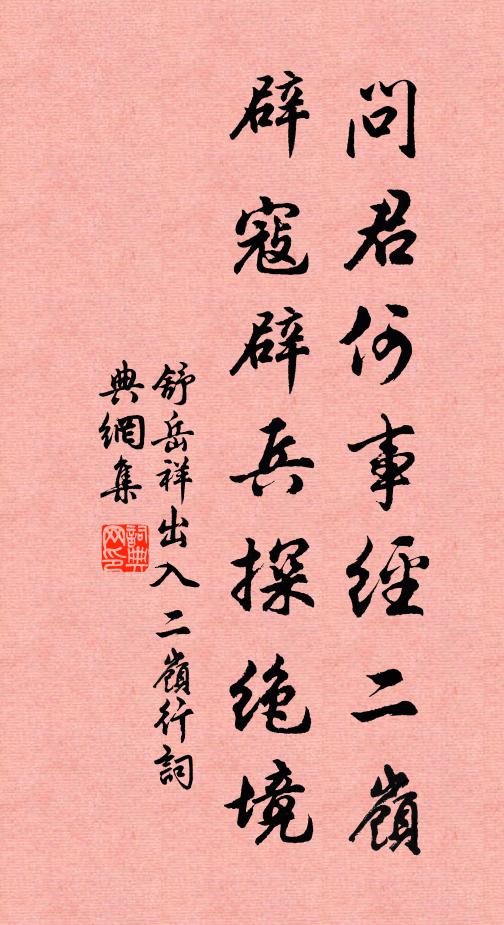 問君何事經二嶺
辟寇辟兵探絶境
舒岳祥出入二嶺行詞
典網集
詞典
网印